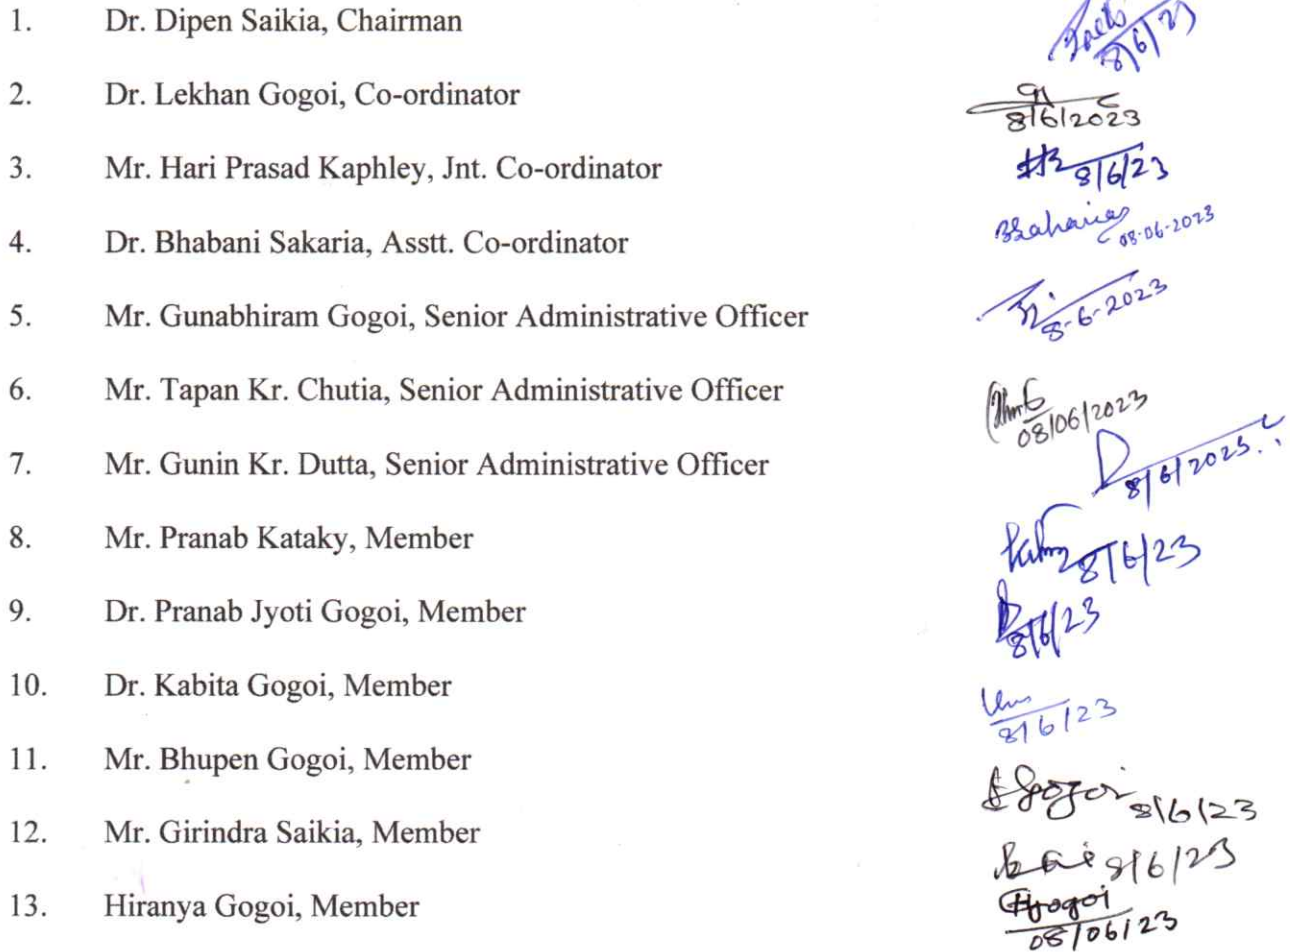 1. Dr. Dipen Saikia, Chairman 8/6/23
2. Dr. Lekhan Gogoi, Co-ordinator 8/6/2023
3. Mr. Hari Prasad Kaphley, Jnt. Co-ordinator 8/6/23
4. Dr. Bhabani Sakaria, Asstt. Co-ordinator 08-06-2023
5. Mr. Gunabhiram Gogoi, Senior Administrative Officer 8-6-2023
6. Mr. Tapan Kr. Chutia, Senior Administrative Officer 08/06/2023
7. Mr. Gunin Kr. Dutta, Senior Administrative Officer 8/6/2023
8. Mr. Pranab Kataky, Member 8/6/23
9. Dr. Pranab Jyoti Gogoi, Member 8/6/23
10. Dr. Kabita Gogoi, Member 8/6/23
11. Mr. Bhupen Gogoi, Member Gogoi 8/6/23
12. Mr. Girindra Saikia, Member 8/6/23
13. Hiranya Gogoi, Member HGogoi 08/06/23